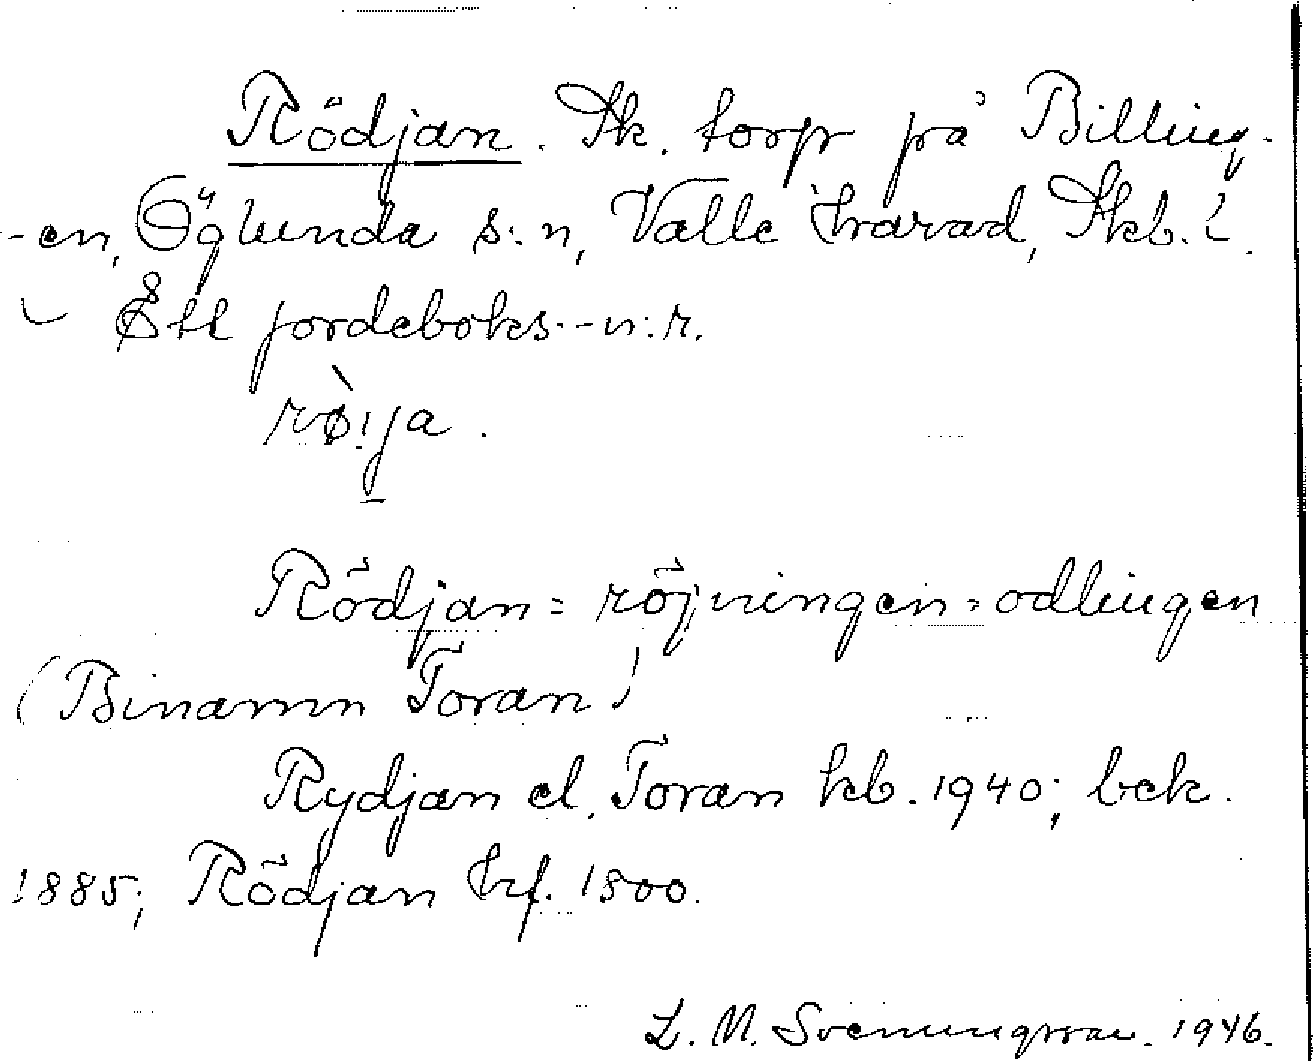 Rödjan. Sk. torp på Billing-
-en, Öglunda s:n, Valle härad, Skb. l.
Ett jordeboks-n:r.
rø̀ija.
Rödjan = röjningen, odlingen
(Binamn Toran)
Rydjan el. Toran kb. 1940; bek.
1885; Rödjan hf. 1800.
L. M. Svenungsson. 1946.